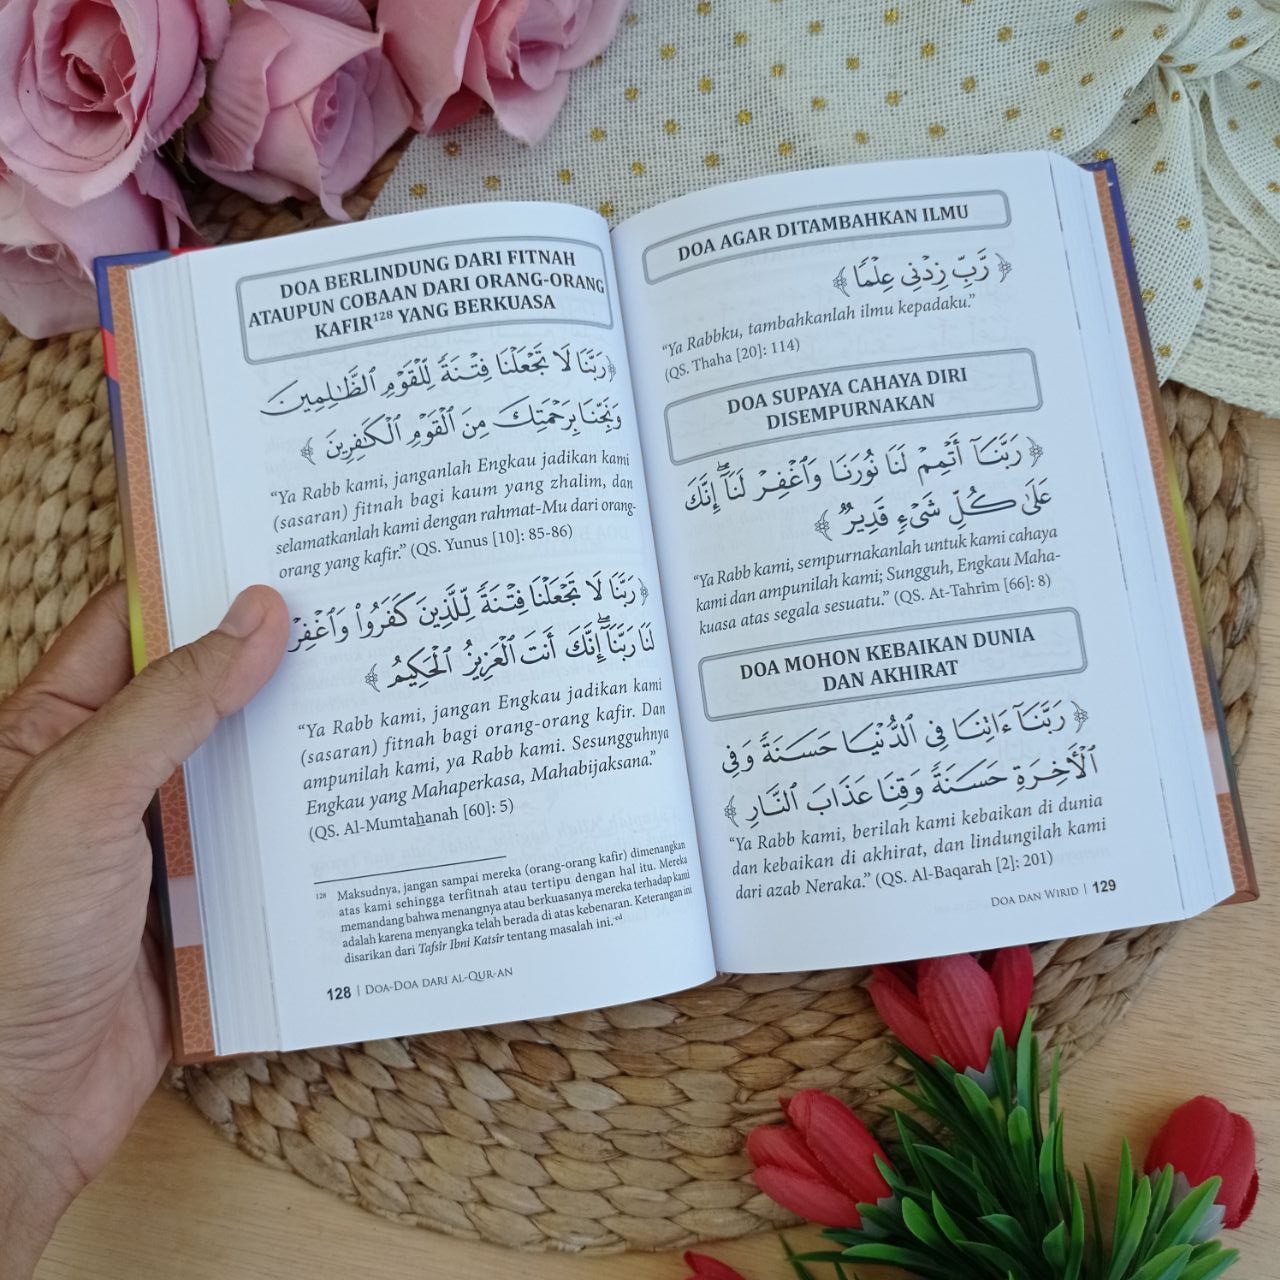 DOA BERLINDUNG DARI FITNAH
ATAUPUN COBAAN DARI ORANG-ORANG
KAFIR¹²⁸ YANG BERKUASA
﴿رَبَّنَا لَا تَجْعَلْنَا فِتْنَةً لِّلْقَوْمِ ٱلظَّـٰلِمِينَ
وَنَجِّنَا بِرَحْمَتِكَ مِنَ ٱلْقَوْمِ ٱلْكَـٰفِرِينَ﴾
“Ya Rabb kami, janganlah Engkau jadikan kami
(sasaran) fitnah bagi kaum yang zhalim, dan
selamatkanlah kami dengan rahmat-Mu dari orang-
orang yang kafir.” (QS. Yunus [10]: 85-86)
﴿رَبَّنَا لَا تَجْعَلْنَا فِتْنَةً لِّلَّذِينَ كَفَرُوا۟ وَٱغْفِرْ
لَنَا رَبَّنَآ ۖ إِنَّكَ أَنتَ ٱلْعَزِيزُ ٱلْحَكِيمُ﴾
“Ya Rabb kami, jangan Engkau jadikan kami
(sasaran) fitnah bagi orang-orang kafir. Dan
ampunilah kami, ya Rabb kami. Sesungguhnya
Engkau yang Mahaperkasa, Mahabijaksana.”
(QS. Al-Mumtahanah [60]: 5)
128 Maksudnya, jangan sampai mereka (orang-orang kafir) dimenangkan
atas kami sehingga terfitnah atau tertipu dengan hal itu. Mereka
memandang bahwa menangnya atau berkuasanya mereka terhadap kami
adalah karena menyangka telah berada di atas kebenaran. Keterangan ini
disarikan dari Tafsîr Ibni Katsîr tentang masalah ini.-ed
128 | DOA-DOA DARI AL-QUR-AN
DOA AGAR DITAMBAHKAN ILMU
﴿رَّبِّ زِدْنِى عِلْمًا﴾
“Ya Rabbku, tambahkanlah ilmu kepadaku.”
(QS. Thaha [20]: 114)
DOA SUPAYA CAHAYA DIRI
DISEMPURNAKAN
﴿رَبَّنَآ أَتْمِمْ لَنَا نُورَنَا وَٱغْفِرْ لَنَآ ۖ إِنَّكَ
عَلَىٰ كُلِّ شَىْءٍ قَدِيرٌ﴾
“Ya Rabb kami, sempurnakanlah untuk kami cahaya
kami dan ampunilah kami; Sungguh, Engkau Maha-
kuasa atas segala sesuatu.” (QS. At-Tahrîm [66]: 8)
DOA MOHON KEBAIKAN DUNIA
DAN AKHIRAT
﴿رَبَّنَآ ءَاتِنَا فِى ٱلدُّنْيَا حَسَنَةً وَفِى
ٱلْأَخِرَةِ حَسَنَةً وَقِنَا عَذَابَ ٱلنَّارِ﴾
“Ya Rabb kami, berilah kami kebaikan di dunia
dan kebaikan di akhirat, dan lindungilah kami
dari azab Neraka.” (QS. Al-Baqarah [2]: 201)
DOA DAN WIRID | 129